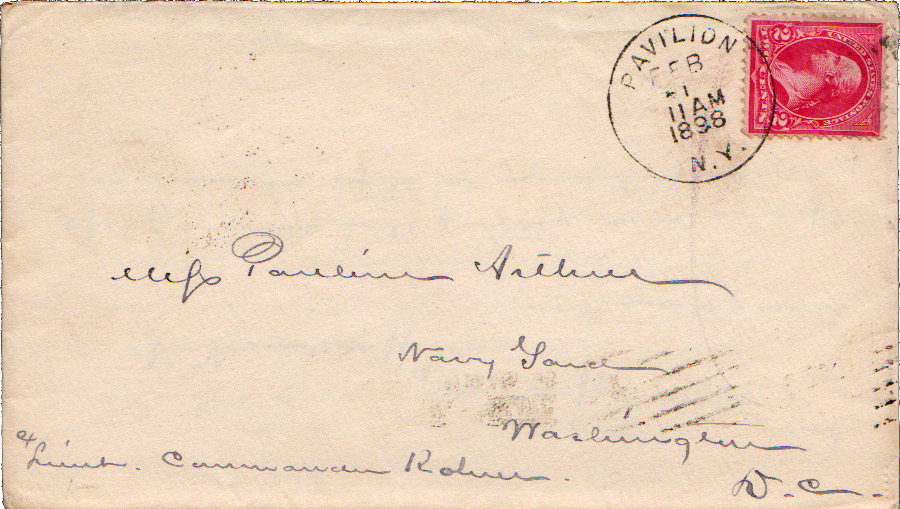 PAVILION
FEB
21
11 AM
1898
N.Y.
UNITED STATES POSTAGE
2 2
Miss Pauline Arthur
Navy Yard
Washington
D.C.
Lieut. Commander